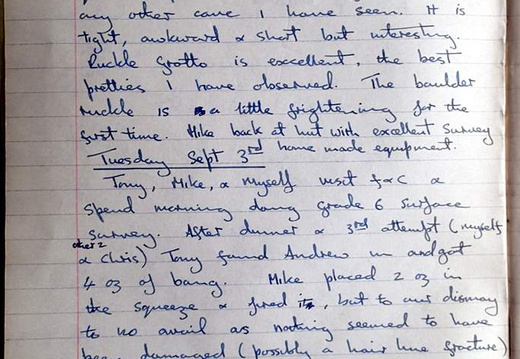 any other cave I have seen. It is
tight, awkward & short but interesting.
Ruckle Grotto is excellent, the best
pretties I have observed. The boulder
ruckle is a little frightening for the
first time. Mike back at hut with excellent survey
home made equipment.
Tuesday Sept 3rd
Tony, Mike, & myself visit F&C &
spend morning doing grade 6 surface
survey. After dinner & 3rd attempt (myself
other 2
& Chris) Tony found Andrew in and got
4 oz of bang. Mike placed 2 oz in
the squeeze & fired it, but to our dismay
to no avail as nothing seemed to have
been damaged (possibly a hair line fracture)